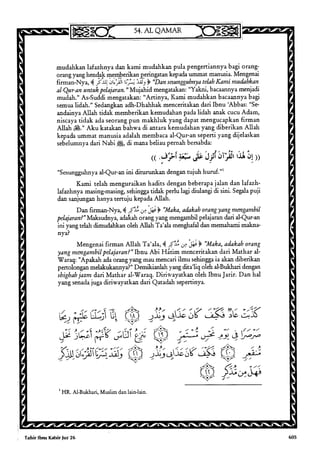 54. AL QAMAR
mudahkan lafazhnya dan kami mudahkan pula pengertiannya bagi orang-
orang yang hendak memberikan peringatan kepada ummat manusia. Mengenai
firman-Nya, ﴿ وَلَقَدْ يَسَّرْنَا الْقُرْآنَ لِلذِّكْرِ ﴾ "Dan sesungguhnya telah Kami mudahkan
al-Qur-an untuk pelajaran." Mujahid mengatakan: "Yakni, bacaannya menjadi
mudah." As-Suddi mengatakan: "Artinya, Kami mudahkan bacaannya bagi
semua lidah." Sedangkan adh-Dhahhak menceritakan dari Ibnu 'Abbas: "Se-
andainya Allah tidak memberikan kemudahan pada lidah anak cucu Adam,
niscaya tidak ada seorang pun makhluk yang dapat mengucapkan firman
Allah ﷻ." Aku katakan bahwa di antara kemudahan yang diberikan Allah
kepada ummat manusia adalah membaca al-Qur-an seperti yang dijelaskan
sebelumnya dari Nabi ﷺ, di mana beliau pernah bersabda:
(( إِنَّ هَذَا الْقُرْآنَ أُنْزِلَ عَلَى سَبْعَةِ أَحْرُفٍ. ))
"Sesungguhnya al-Qur-an ini diturunkan dengan tujuh huruf."¹
Kami telah menguraikan hadits dengan beberapa jalan dan lafazh-
lafazhnya masing-masing, sehingga tidak perlu lagi diulangi di sini. Segala puji
dan sanjungan hanya tertuju kepada Allah.
Dan firman-Nya, ﴿ فَهَلْ مِن مُّدَّكِرٍ ﴾ "Maka, adakah orang yang mengambil
pelajaran?" Maksudnya, adakah orang yang mengambil pelajaran dari al-Qur-an
ini yang telah dimudahkan oleh Allah Ta'ala menghafal dan memahami makna-
nya?
Mengenai firman Allah Ta'ala, ﴿ فَهَلْ مِن مُّدَّكِرٍ ﴾ "Maka, adakah orang
yang mengambil pelajaran?" Ibnu Abi Hatim menceritakan dari Mathar al-
Waraq: "Apakah ada orang yang mau mencari ilmu sehingga ia akan diberikan
pertolongan melakukannya?" Demikianlah yang dita'liq oleh al-Bukhari dengan
shighah jazm dari Mathar al-Waraq. Diriwayatkan oleh Ibnu Jarir. Dan hal
yang senada juga diriwayatkan dari Qatadah sepertinya.
¹ HR. Al-Bukhari, Muslim dan lain-lain.
Tafsir Ibnu Katsir Juz 26
605